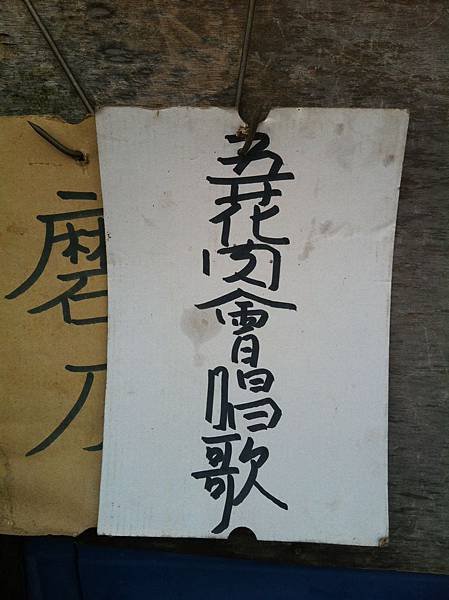 五花肉會唱歌
磨刀